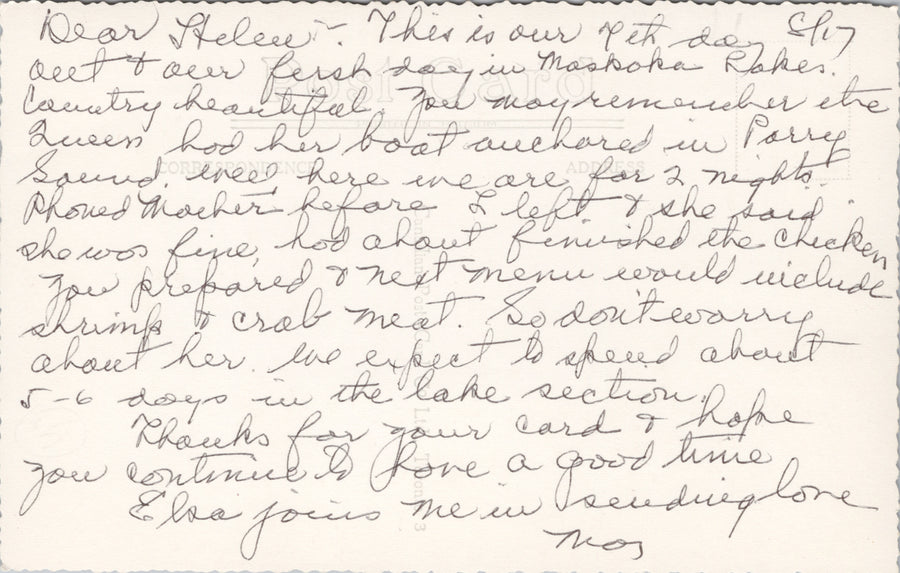 Dear Helen - : This is our 7th day 8/17
out & our first day in Moskoka Lakes.
Country beautiful. You may remember the
Queen had her boat anchored in Parry
Sound. Well here we are for 2 nights.
Phoned Mother before I left & she said
she was fine, had about finished the chicken
you prepared & next menu would include
shrimp & crab meat. So don't worry
about her. We expect to spend about
5-6 days in the lake section.
Thanks for your card & hope
you continue to have a good time
Elsa joins me in sending love
Post Card
CORRESPONDENCE
ADDRESS